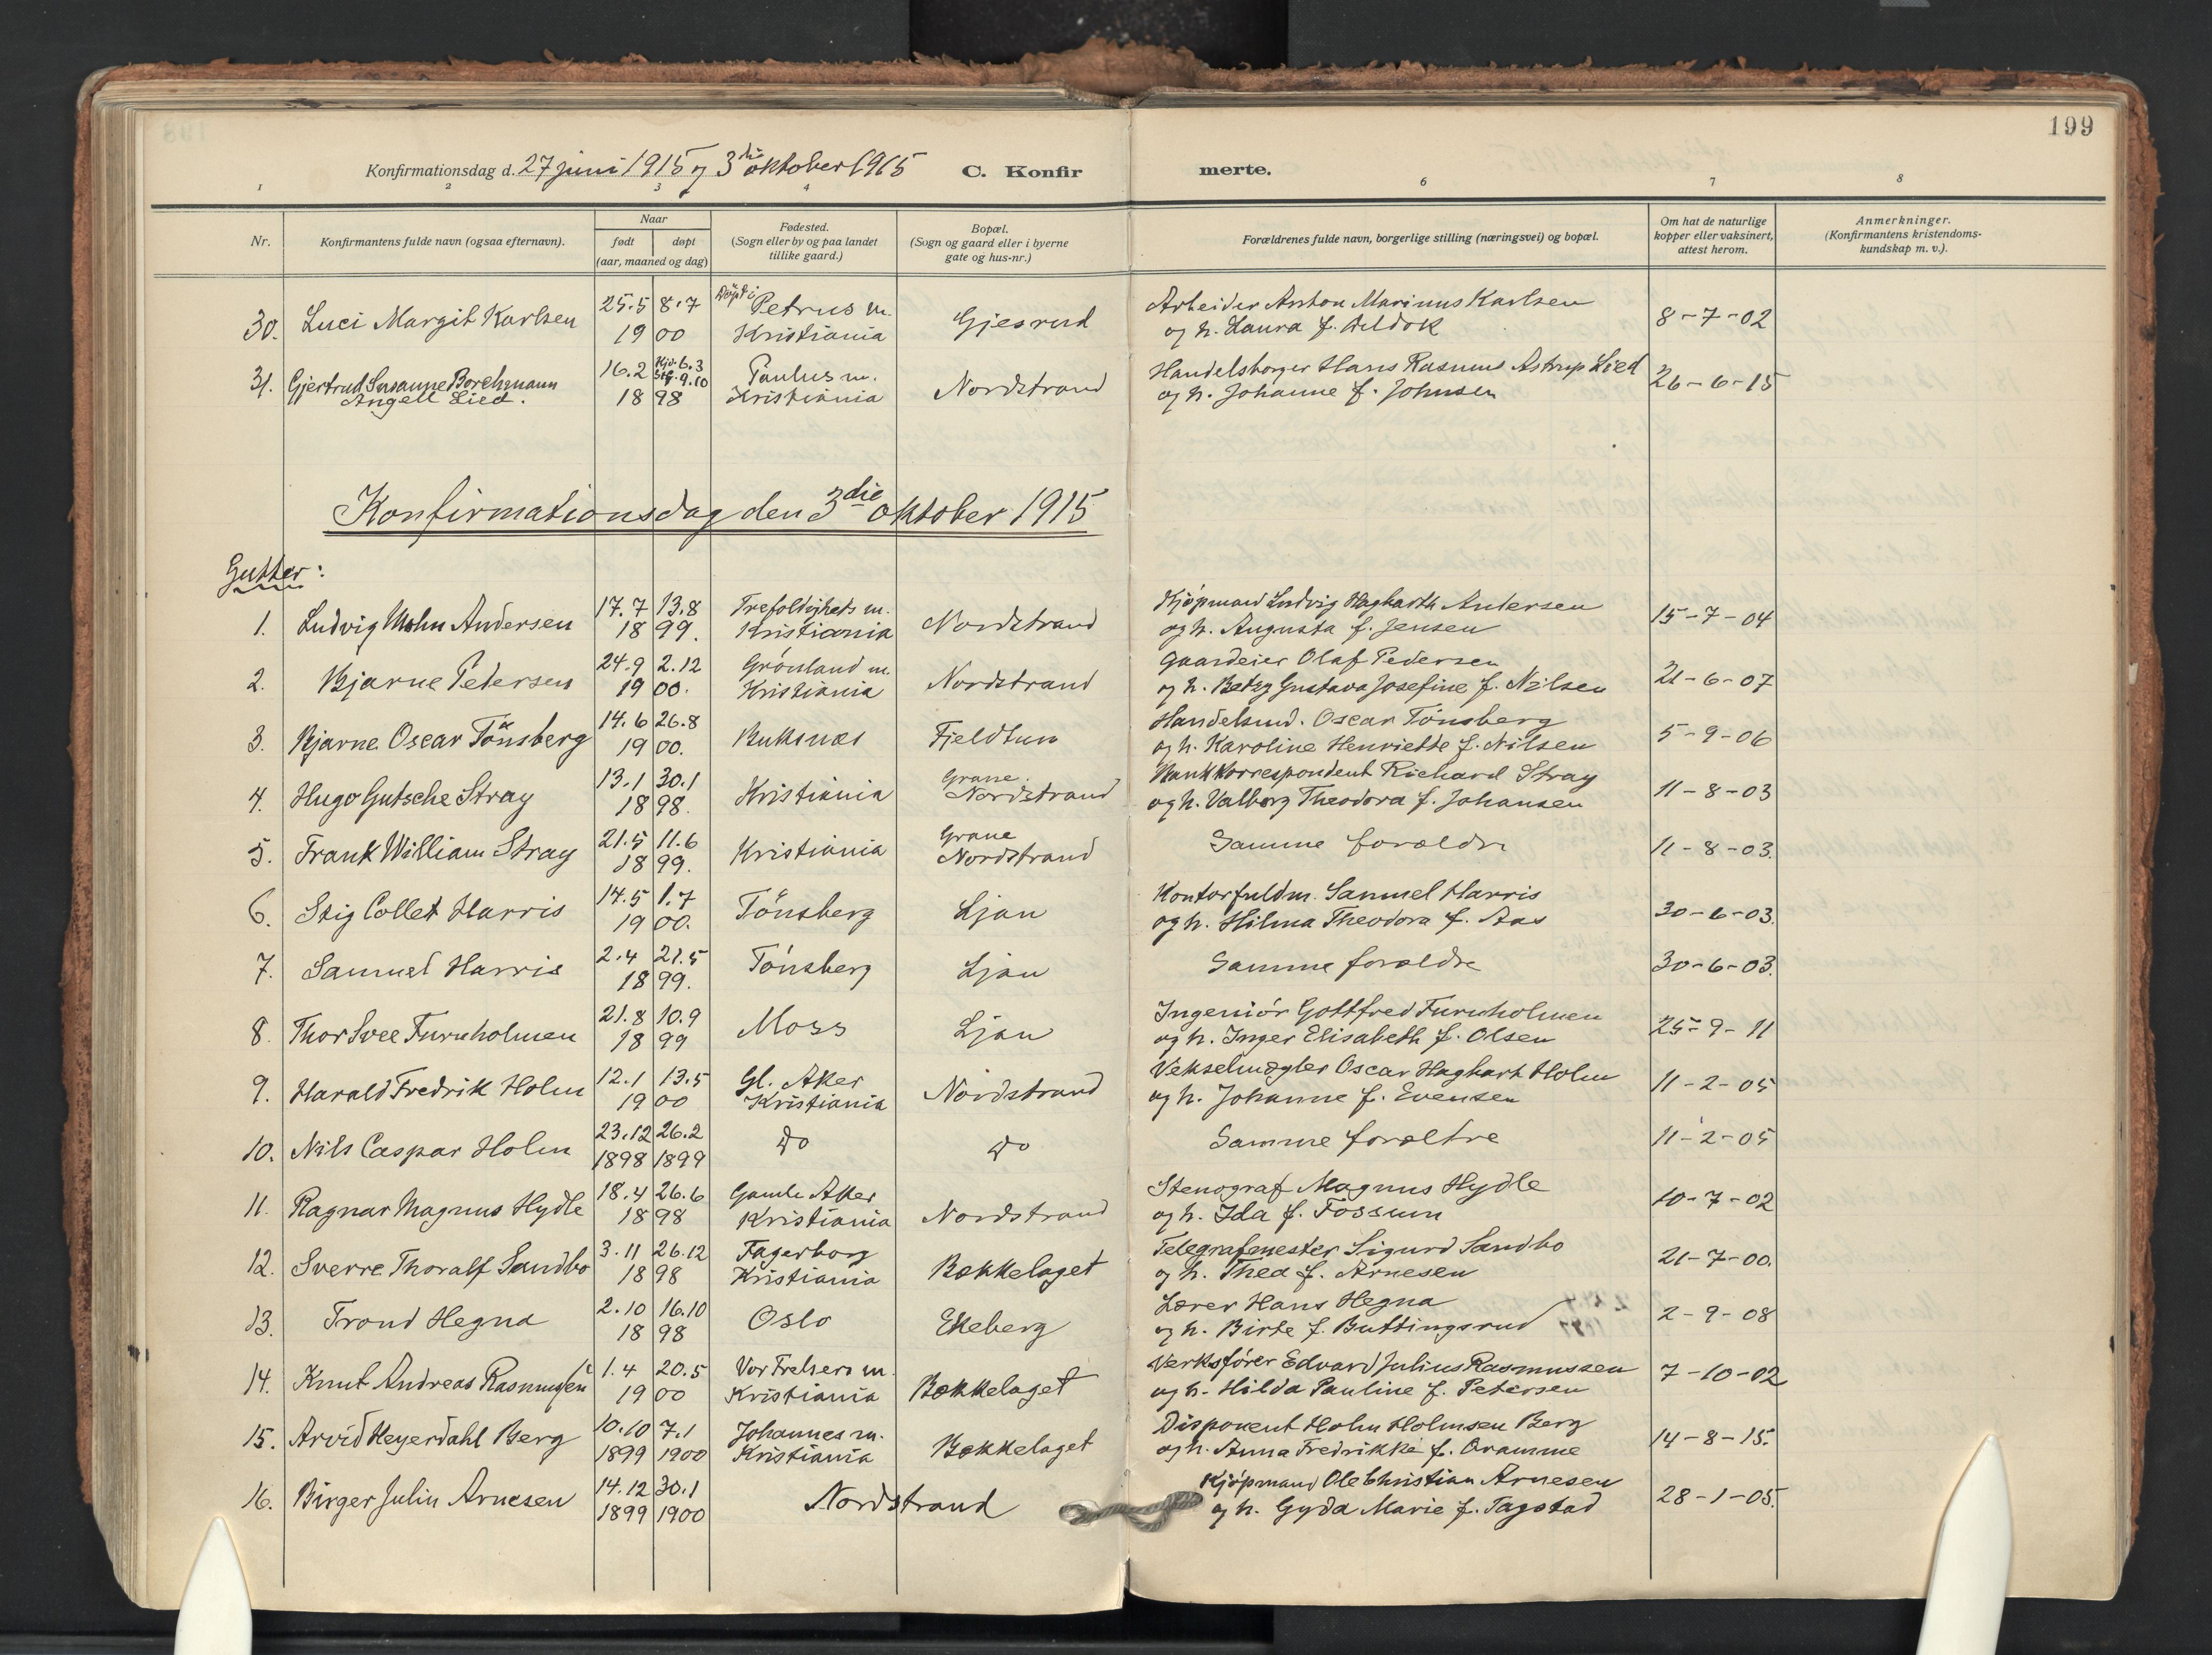 199
Konfirmationsdag d. 27 juni 1915 og 3die oktober 1915 C. Konfirmerte.
1 2 3 4 6 7 8
Nr.
Konfirmantens fulde navn (ogsaa efternavn).
Naar
født døpt
(aar, maaned og dag)
Fødested.
(Sogn eller by og paa landet
tillike gaard.)
Bopæl.
(Sogn og gaard eller i byerne
gate og hus-nr.)
Forældrenes fulde navn, borgerlige stilling (næringsvei) og bopæl.
Om hat de naturlige
kopper eller vaksinert,
attest herom.
Anmerkninger.
(Konfirmantens kristendoms-
kundskap m. v.).
30. Luci Margit Karlsen 25.5 8.7 Døpt i Petrus m. Gjesrud Arbeider Anton Marinus Karlsen 8-7-02
19 00 Kristiania og h. Laura f.
31. Gjertrud Susanne Borchmann 16.2 Hjd. 6.3 Paulus m. Nordstrand Handelsborger Hans Rasmus Astrup Lied 26-6-15
Angell Lied. Stf. 9.10
18 98 Kristiania og h. Johanne f. Johnsen
Konfirmationsdag den 3die oktober 1915
Gutter:
1. Ludvig Mohn Andersen 17.7 13.8 Trefoldighets m. Nordstrand Kjøpmand Ludvig Hagbarth Andersen 15-7-04
18 99. Kristiania og h. Augusta f. Jensen
2. Bjarne Petersen 24.9 2.12 Grønland m. Nordstrand Gaardeier Olaf Pedersen 21-6-07
19 00. Kristiania og h. Betzy Gustava Josefine f. Nilsen
3. Bjarne Oscar Tönsberg 14.6 26.8 Buksnæs Fjeldtun Handelsmd. Oscar Tönsberg 5-9-06
19 00. og h. Karoline Henriette f. Nilsen
4. Hugo Gutsche Stray 13.1 30.1 Kristiania Grane. Nordstrand Bankkorrespondent Richard Stray 11-8-03
18 98. og h. Valborg Theodora f. Johansen
5. Frank William Stray 21.5 11.6 Kristiania Grane Nordstrand Samme forældre 11-8-03.
18 99.
6. Stig Collet Harris 14.5 1.7 Tönsberg Ljan Kontorfuldm. Samuel Harris 30-6-03.
19 00. og h. Hilma Theodora f. Aas
7. Samuel Harris 2.4 21.5 Tönsberg Ljan Samme forældre 30-6-03.
18 99.
8. Thor Svee Furuholmen 21.8 10.9 Moss Ljan Ingeniør Gottfred Furuholmen 25-9-11
18 99 og h. Inger Elisabeth f. Olsen
9. Harald Fredrik Holm 12.1 13.5 Gl. Aker Nordstrand Vekselmægler Oscar Hagbart Holm 11-2-05
19 00 Kristiania og h. Johanne f. Evensen
10. Nils Caspar Holm 23.12 26.2 Do Do Samme forældre 11-2-05
1898 1899
11. Ragnar Magnus Hydle 18.4 26.6 Gamle Aker Nordstrand Stenograf Magnus Hydle 10-7-02
18 98 Kristiania og h. Ida f. Fossum
12. Sverre Thoralf Sandbo 3.11 26.12 Fagerborg Bækkelaget Telegrafmester Sigurd Sandbo 21-7-00.
18 98 Kristiania og h. Thea f. Arnesen
13. Trond Hegna 2.10 16.10 Oslo Ekeberg Lærer Hans Hegna 2-9-08
18 98 og h. Birte f. Buttingsrud
14. Knut Andreas Rasmussen 1.4 20.5 Vor Frelsers m. Bækkelaget Verksfører Edvard Julius Rasmussen 7-10-02
19 00 Kristiania og h. Hilda Pauline f. Petersen
15. Arvid Heyerdahl Berg 10.10 7.1 Johannes m. Bækkelaget Disponent Holm Holmsen Berg 14-8-15.
1899 1900 Kristiania og h. Anna Fredrikke f. Oramme
16. Birger Julin Arnesen 14.12 30.1 Nordstrand Kjøpmand Ole Christian Arnesen 28-1-05.
1899 1900 og h. Gyda Marie f. Tagstad